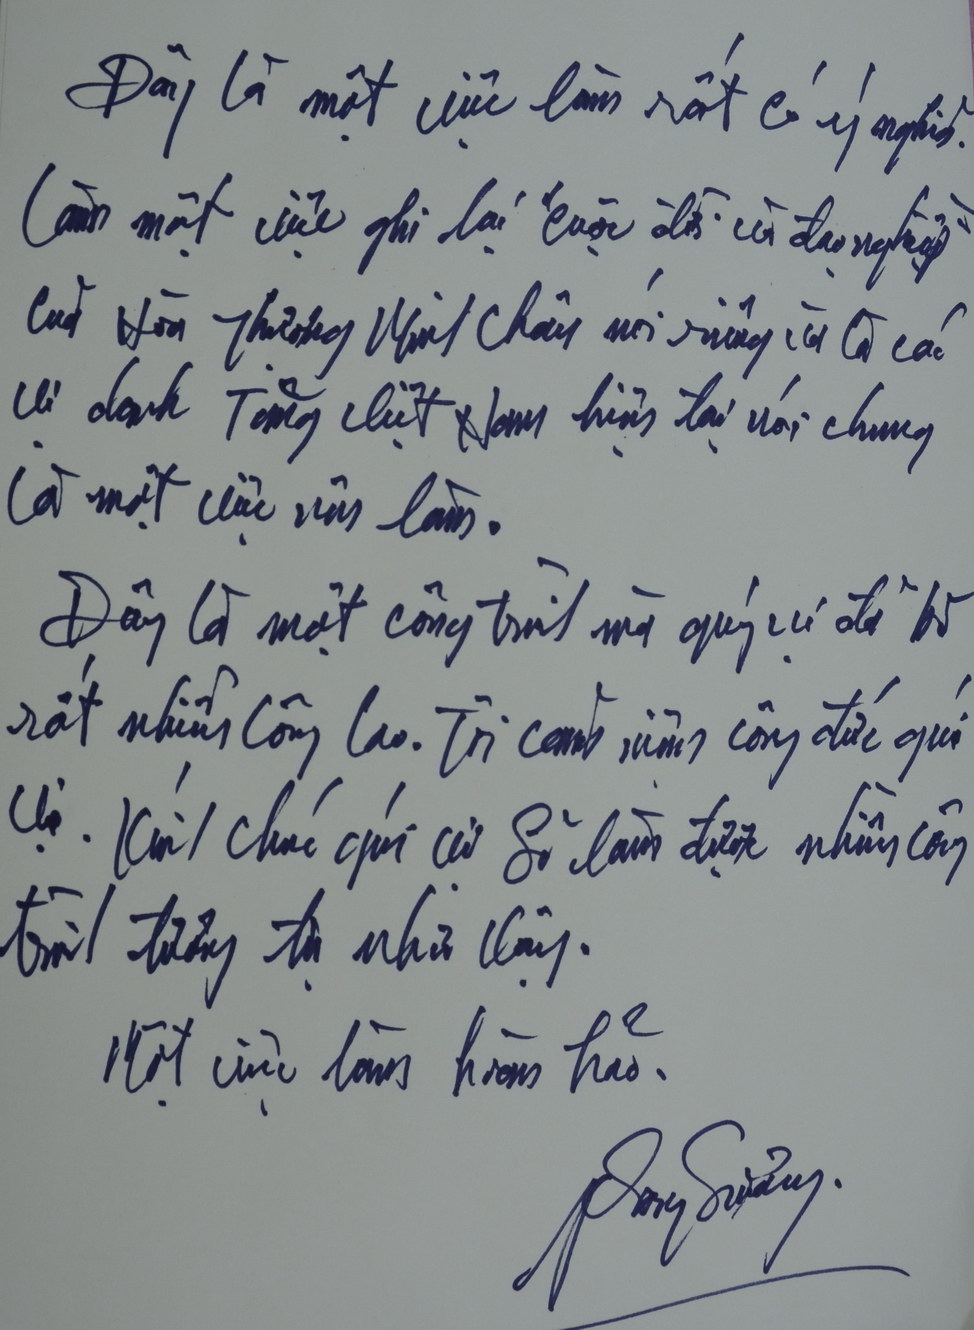 Đây là một việc làm rất có ý nghĩa.
Làm một việc ghi lại "cuộc đời và đạo nghiệp"
của Hòa Thượng Minh Châu nói riêng và là các
vị danh Tăng Việt Nam hiện tại nói chung
là một việc nên làm.
Đây là một công trình mà quý vị đã bỏ
rất nhiều công lao. Tôi cảm niệm công đức quí
vị. Kính chúc quí vị sẽ làm được nhiều công
trình tương tự như vậy.
Một việc làm hoàn hảo.